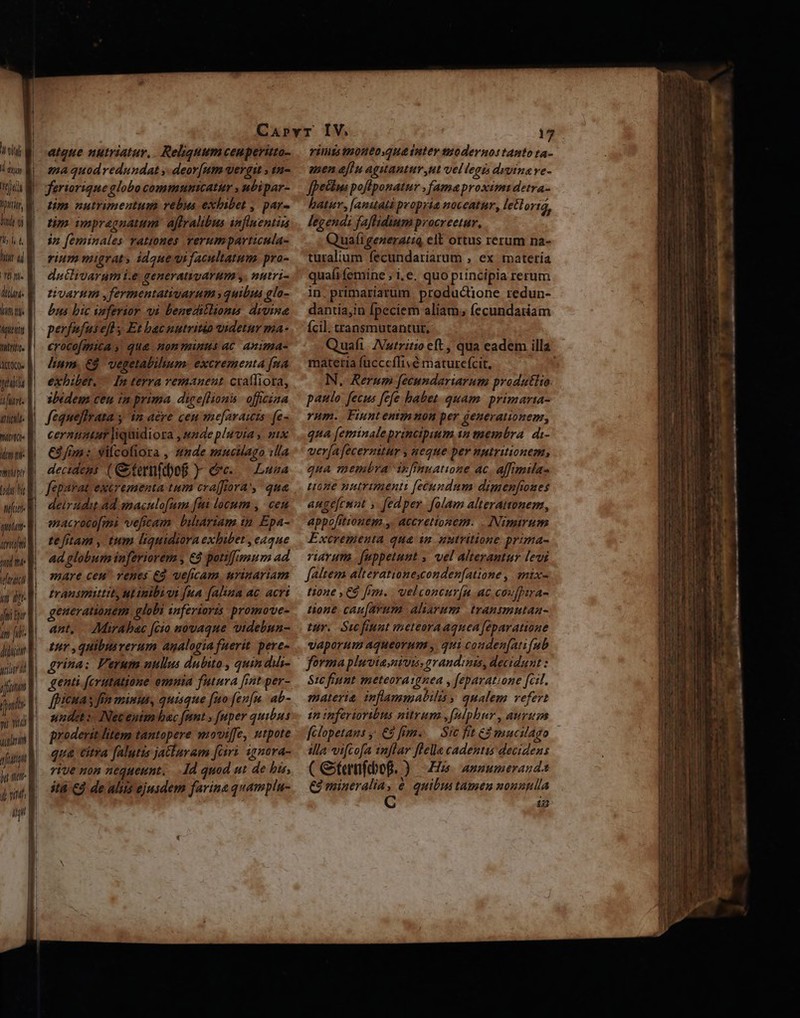 CAPVT IV. 17
atque nutriatur. Reliquum ceu peritto-
ma quod redundat, deorsum vergit, in-
feriorique globo communicatur, ubi par-
tim nutrimentum rebus exhibet, par-
tim impragnatum astralibus influentiis
in seminales rationes rerum particula-
rium migrat, idque vi facultatum pro-
ductivarum i.e. generativarum, nutri-
tivarum, fermentativarum, quibus glo-
bus hic inferior vi benedictionis divinæ
perfusus est. Et hæc nutritio videtur ma-
crocosmica, quæ non minus ac anima-
lium, & vegetabilium excrementa sua
exhibet. In terra remanent crassiora,
ibidem ceu in prima digestionis officina
sequestrata, in aëre ceu mesaraicis se-
cernuntur liquidiora, unde pluvia, nix
& sim: viscosiora, unde mucilago illa
decidens (Sternschoß) &c. Luna
separat excrementa tum crassiora, quæ
detrudit ad maculosum sui locum, ceu
macrocosmi vesicam biliariam in Epa-
te sitam, tum liquidiora exhibet, eaque
ad globum inferiorem, & potissimum ad
mare ceu renes & vesicam urinariam
transmittit, ut inibi vi sua salina ac acri
generationem globi inferioris promove-
ant. Mira hæc scio novaque videbun-
tur, quibus rerum analogia fuerit pere-
grina: Verum nullus dubito, quin dili-
genti scrutatione omnia futura sint per-
spicua, sin minus, quisque suo sensu ab-
undet: Nec enim hæc sunt, super quibus
proderit litem tantopere movisse, utpote
quæ citra salutis jacturam sciri ignora-
rive non nequeunt. Id quod ut de his,
ita & de aliis ejusdem farinæ quamplu-
rimis moneo, quæ inter modernos tanto ta-
men æstu agitantur, ut vel legis divinæ re-
spectus postponatur, fama proximi detra-
hatur, sanitati propria noceatur, lectoriq;
legendi fastidium procreetur.
Quasi generatiq est ortus rerum na-
turalium secundariarum, ex materia
quasi semine, i.e. quo principia rerum
in primariarum productione redun-
dantia, in speciem aliam, secundariam
scil. transmutantur.
Quasi Nutritio est, qua eadem illa
materia successivè maturescit.
N. Rerum secundariarum productio
paulo secus sese habet quam primaria-
rum. Fiunt enim non per generationem,
qua seminale principium in membra di-
versa secernitur, neque per nutritionem,
qua membra insinuatione ac assimila-
tione nutrimenti secundum dimensiones
augescunt, sed per solam alterationem,
appositionem, accretionem. Nimirum
Excrementa quæ in nutritione prima-
riarum suppetunt, vel alterantur levi
saltem alteratione, condensatione, mix-
tione, & sim. vel concursu ac conspira-
tione causarum aliarum transmutan-
tur. Sic fiunt meteora aquea separatione
vaporum aqueorum, qui condensati sub
forma pluviæ, nivis, grandinis, decidunt:
Sic fiunt meteora ignea, separatione scil.
materiæ inflammabilis, qualem refert
in inferioribus nitrum, sulphur, aurum
sclopetans, & sim. Sic fit & mucilago
illa viscosa instar stellæ cadentis decidens
(Sternschoß.) His annumeranda
& mineralia, è quibus tamen nonnulla
C in